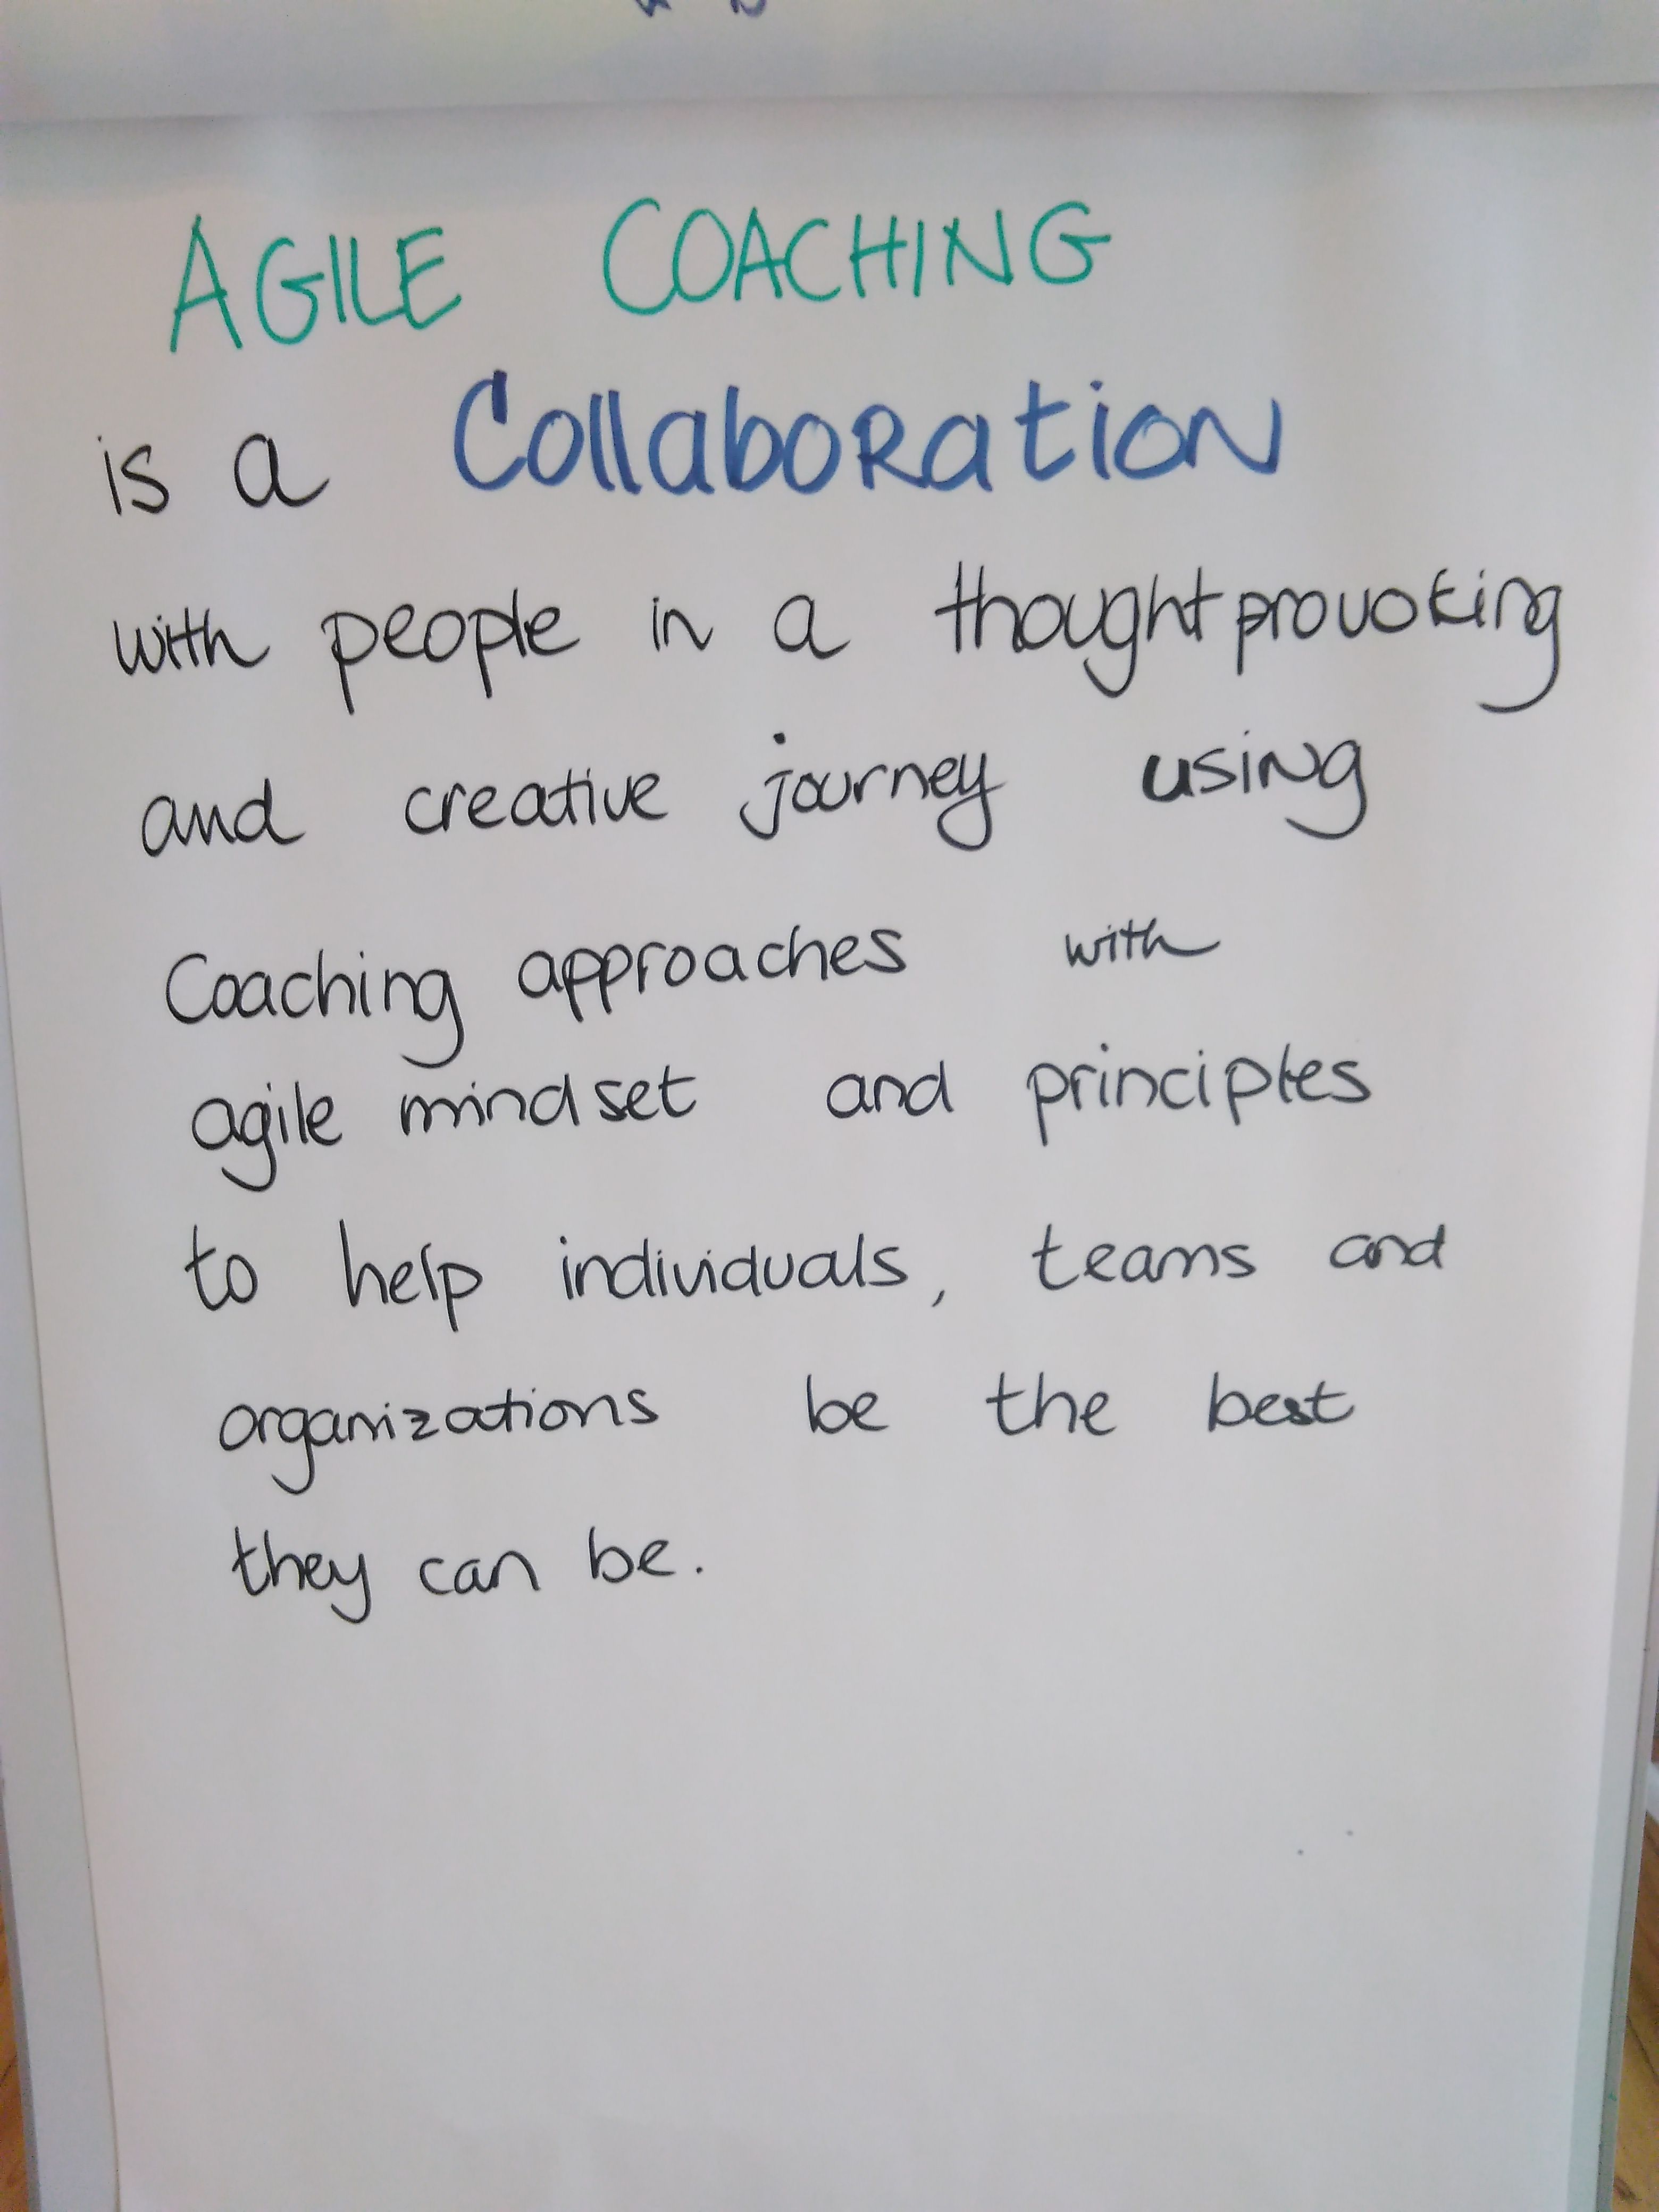 AGILE COACHING
is a CollaboRatioN
with people in a thoughtprovoking
and creative journey using
Coaching approaches with
agile mindset and principles
to help individuals, teams and
organizations be the best
they can be.